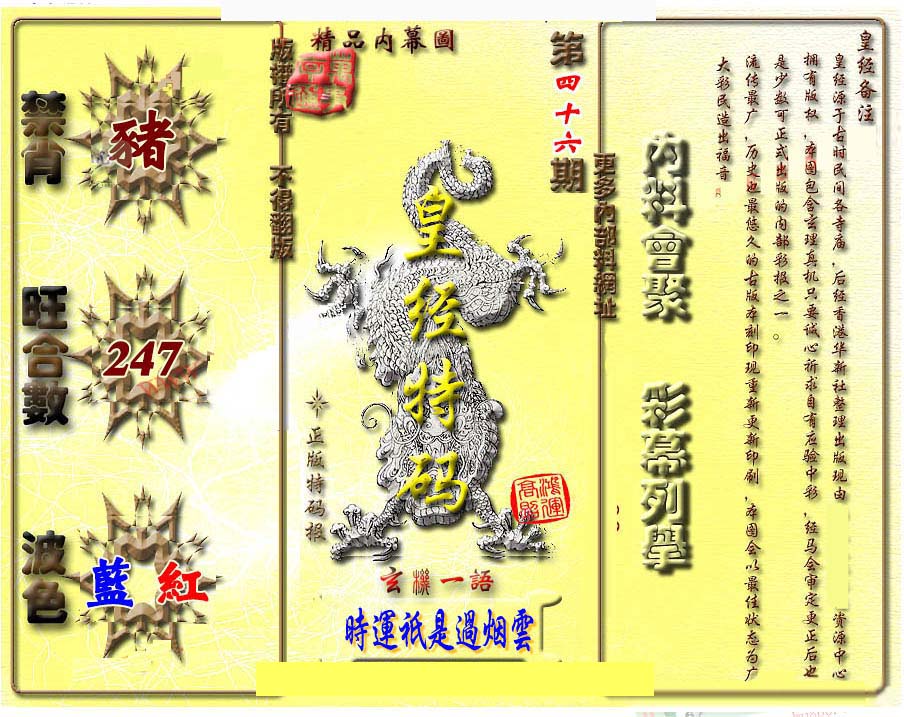 精品内幕圖
第四十六期
版權所有 不得翻版
更多內部料網址
皇经特码
※正版特码报
鴻運高照
玄機一語
時運祇是過烟雲
禁肖
豬
旺合數
247
波色
藍 紅
內料會聚
彩幕列舉
皇经备注
皇经源于古时民间各寺庙，后经香港华新社整理出版现由 资源中心
拥有版权，本图包含玄理真机只要诚心祈求自有应验中彩，经马会审定更正后也
是少数可正式出版的内部彩报之一。
流传最广，历史也最悠久的古版本刻印现重新更新印刷，本图会以最佳状态为广
大彩民造出福音